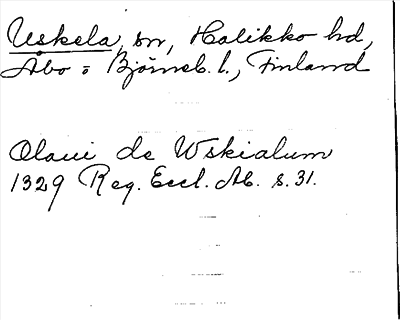 Uskela, sn, Halikko hd,
Åbo o Björneb. l., Finland
Olaui de Wskialum
1329 Reg. Eccl. Ab. s. 31.